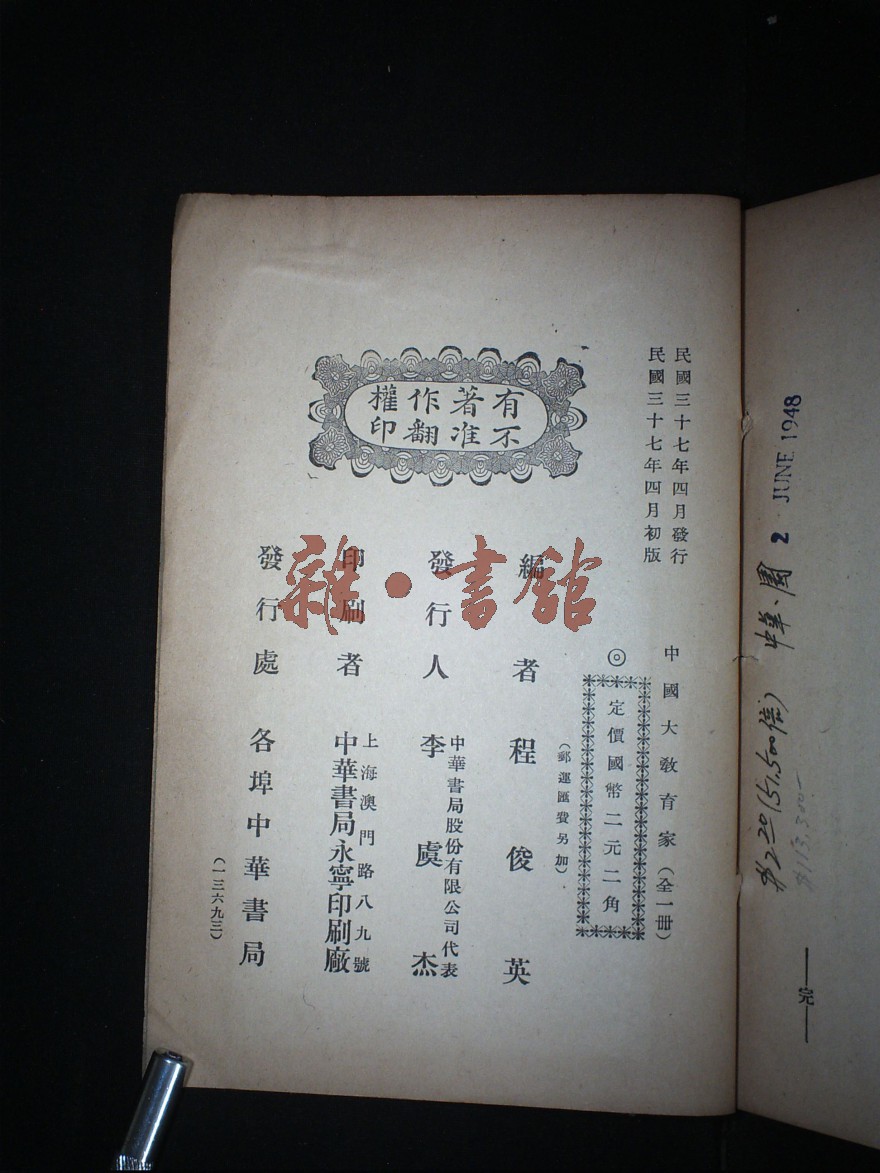 民國三十七年四月發行
民國三十七年四月初版
有著作權
不准翻印
中國大教育家(全一冊)
◎定價國幣二元二角
(郵運匯費另加)
編者 程俊英
發行人 李虞杰
中華書局股份有限公司代表
印刷者 中華書局永寧印刷廠
上海澳門路八九號
發行處 各埠中華書局
(一三六九三)
雜·書館
2 JUNE 1948
—完—